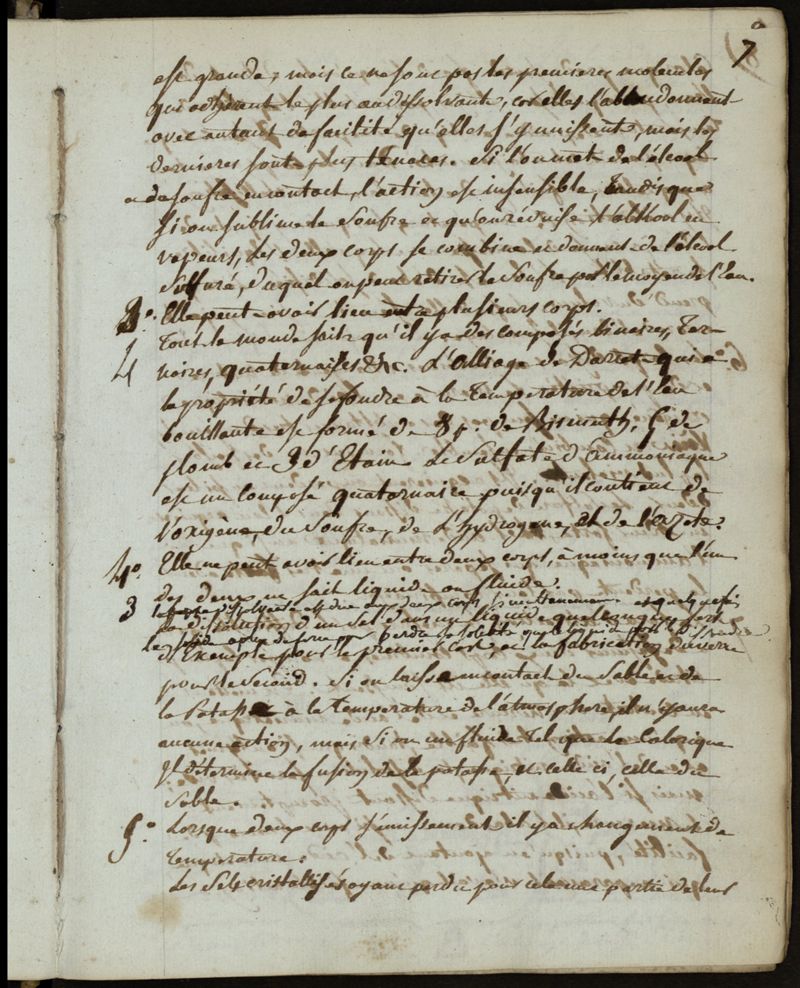 7
est grande; mais ce ne sont pas les premieres molecules
qui adhèrent le plus au dissolvante, car elles l'abandonnent
avec autant de facilité qu'elles s'y unissent, mais les
dernieres sont plus tenaces. Si l'on met de l'alcool
et du soufre en contact, l'action est insensible, tandis que
si on sublime le soufre et qu'on réduise l'alkool en
vapeurs, les deux corps se combine et donnent de l'alcool
sulfuré, duquel on peut retirer le soufre par le moyen de l'eau.
3°. Elle peut avoir lieu entre plusieurs corps.
Tout le monde sait qu'il y a des composés binaires, ter-
4 noires, quaternaires &c. L'alliage de Darcet qui a
la propriété de se fondre à la temperature de l'eau
bouillante est formé de 8 p. de Bismuth, 5 de
plomb et 3 d'Etain. Le Sulfate d'ammoniaque
est un composé quaternaire puisqu'il contient de
l'oxigène, du soufre, de l'hydrogene, et de l'azote.
4°. Elle ne peut avoir lieu entre deux corps, à moins que l'un
des deux ne soit liquide ou fluide.
3 deux corps
la dissolution d'un sel dans un liquide quelconque sert
le solide
d'Exemple pour le premier cas, et la fabrication du verre
pour le second. Si on laisse en contact du sable et de
la Potasse à la temperature de l'atmosphere, il n'y aura
aucune action, mais si on un fluide tel que le Calorique
Il détermine la fusion de la potasse, et celle ci, celle du
Sable.
5°. Lorsque deux corps s'unissement il y a changement de
temperature.
Les Sels cristallisés ayant perdu pour cela une partie de leur